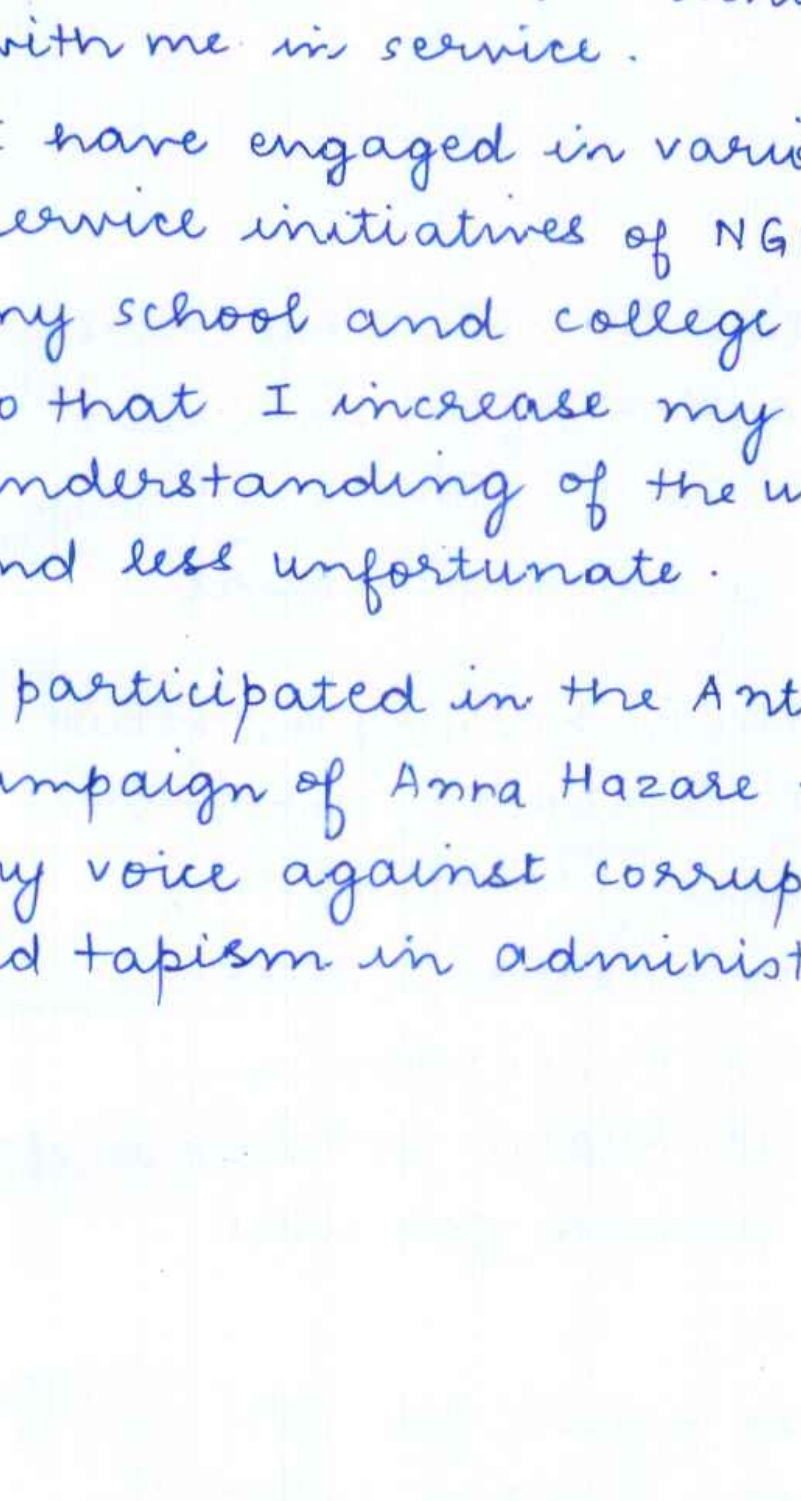 with me in service.
I have engaged in vario
ervice initiatives of NG
my school and college
o that I increase my
nderstanding of the w
nd less unfortunate.
participated in the Ant
ampaign of Anna Hazare
my voice against corrup
d tapism in administ